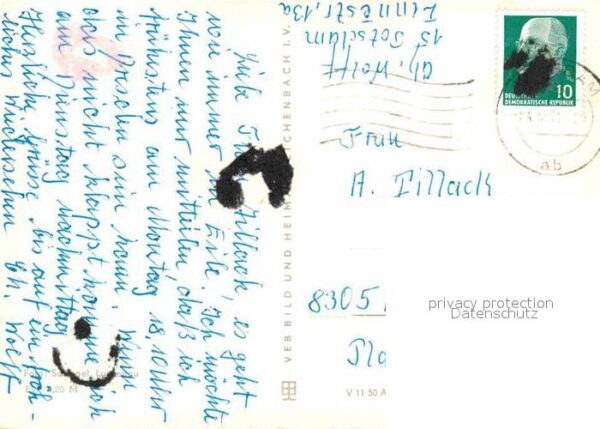 Liebe Frau Tillack, es geht
wie immer in Eile! Ich möchte
Ihnen nur mitteilen, daß ich
frühstens am Montag 18,00 Uhr
in Dresden sein kann. Wenn
das nicht klappt komme ich
am Dienstag nachmittag.
Herzliche Grüsse bis auf ein fröh-
liches Wiedersehn Ch. Wolff
VEB BILD UND HEIM CHENBACH I.V.
Ch. Wolff
15 Potsdam
Linnéstr, 13a
DEUTSCHE
DEMOKRATISCHE REPUBLIK
10
ab
Frau
A. Tillack
8305
privacy protection
Datenschutz
V 11 50 A